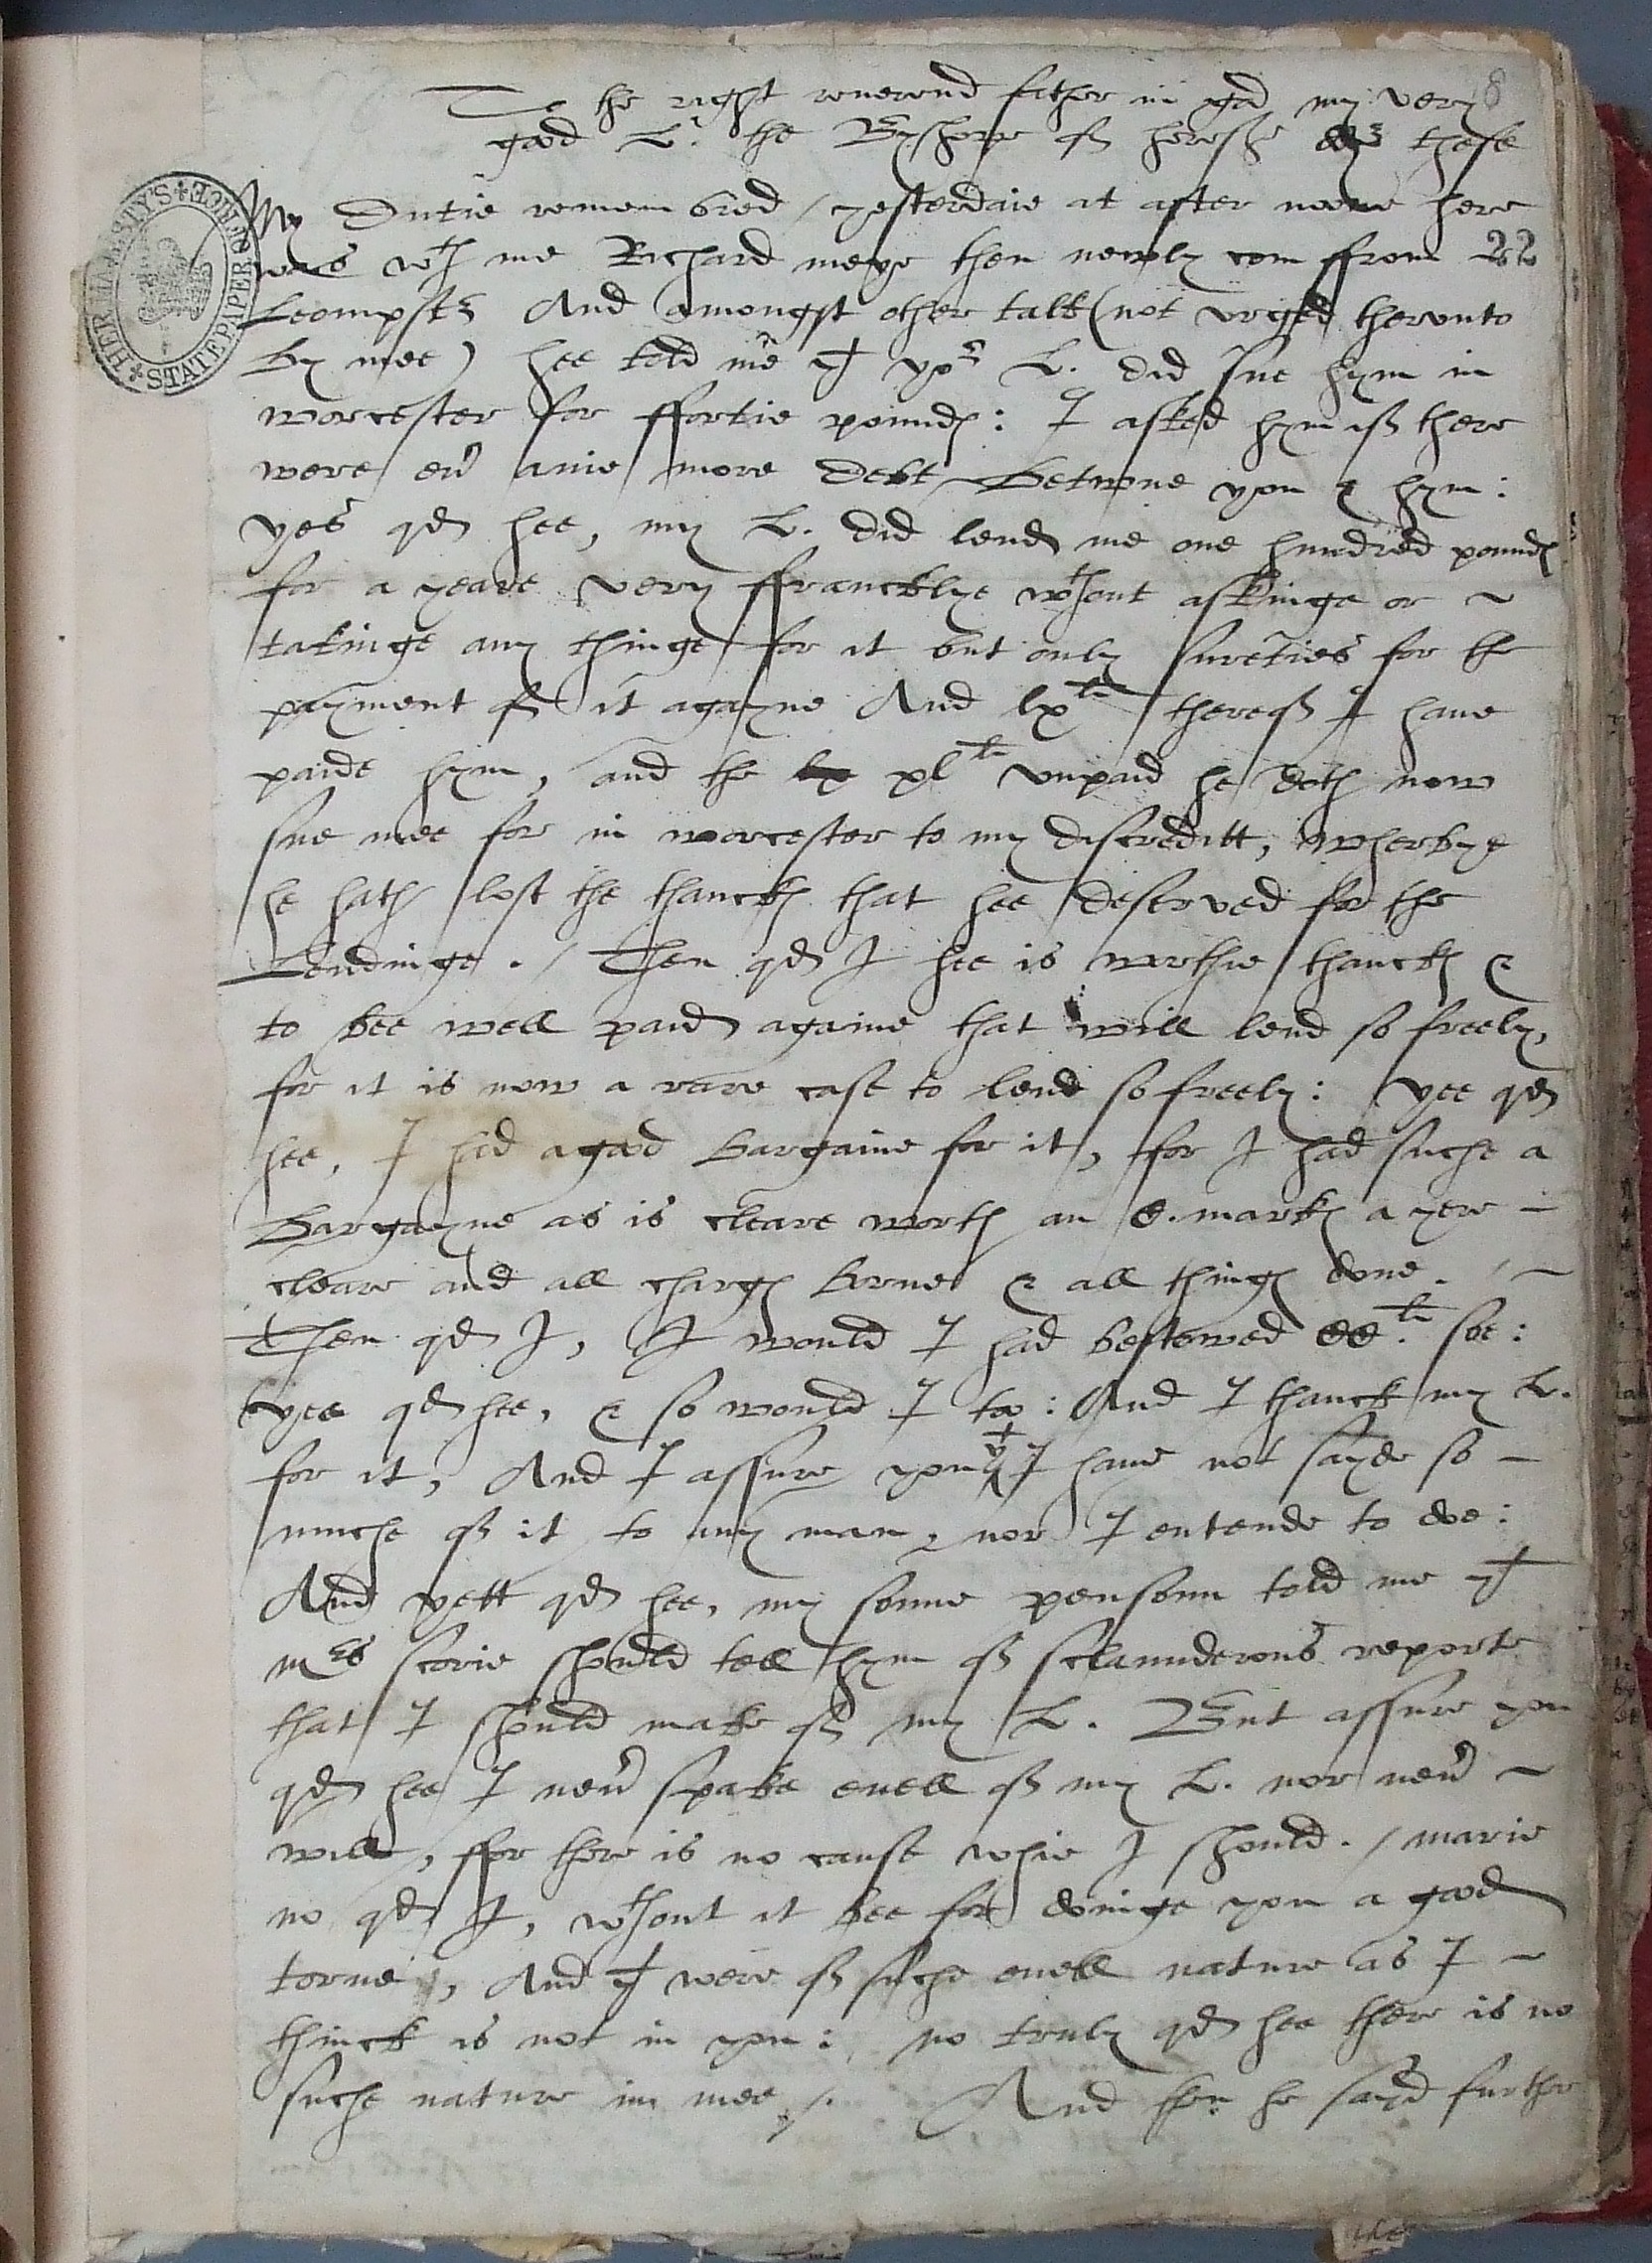 To the right reuerend father in god my very
good L. the Bysshope of heref. these
My Dutie remembred / yesterdaie at after noone here
was wth me Richard meye then newly com ffrom
Leompstr And amongst other talk (not vrged thervnto
by mee) hee told me yt yor L. did sue hym in
worcester for ffortie poundes: I asked hym if there
were eu9 anie more Debt Betwene you & hym:
yes qd hee, my L. did lend me one hundred poundes
for a yeare very ffrancklye wthout askinge or ~
takinge any thinge for it but only sureties for the
payment of it agayne And lxli thereof I haue
paide hym, and the xlli vnpaid he doth now
sue mee for in worcester to my discreditt, wherbye
he hath lost the thanckes that hee deserved for the
Lendinge. / Then qd I hee is worthie thanckes &
to bee well paid againe that will lend so freely,
for it is now a rare case to lend so freely: yee qd
hee, I had a good Bargaine for it, for I had suche a
Bargayne as is cleare worth an C. markes a yere –
cleare and all charges borne & all thinges done. / ~
Then qd I, I would I had bestowed CCli. soe:
yee qd hee, & so would I too: And I thanck my L.
for it, And I assure you yt I haue not sayde so –
muche of it to any man, nor I entende to doe:
And yett qd hee, my sonne pensonn told me yt
mres scorie should tell hym of sclaunderous reporte
that I should make of my L. But assure you
qd hee I neu9 spake euell of my L. nor neu9 ~
will, ffor there is no cause whie I should. / marie
no qd I, wthout it bee for doinge you a good
torne, And yt were of suche euell nature as I ~
thinck is not in you: no truly qd hee there is no
suche nature in mee /. And then he sayd further
HER MAJESTY'S STATE PAPER OFFICE